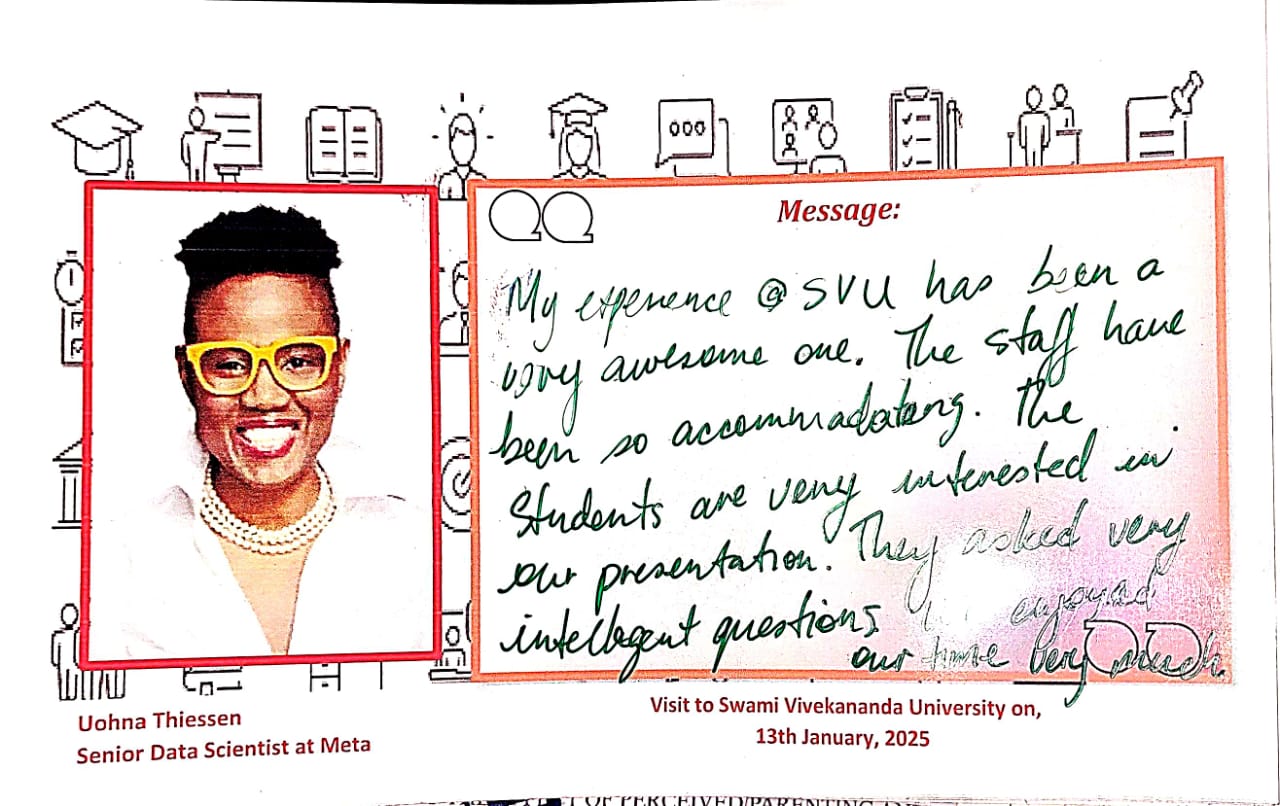 Message:
My experience @ SVU has been a
very awesome one. The staff have
been so accommadating. The
Students are very interested in
our presentation. They asked very
intellegent questions enjoyed
our time very much.
Uohna Thiessen
Senior Data Scientist at Meta
Visit to Swami Vivekananda University on,
13th January, 2025
OF PERCEIVED/PARENTING